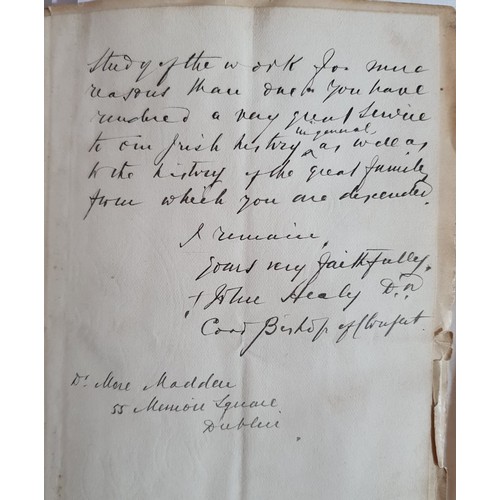 Study of the work for more
reasons than one. You have
rendered a very great Service
to our Irish history in general as well as
to the history of the great family
from which you are descended.
I remain
Yours very faithfully,
+ John Healy D.D
Coad Bishop of Clonfert.
Dr. More Madden
55 Merrion Square
Dublin.